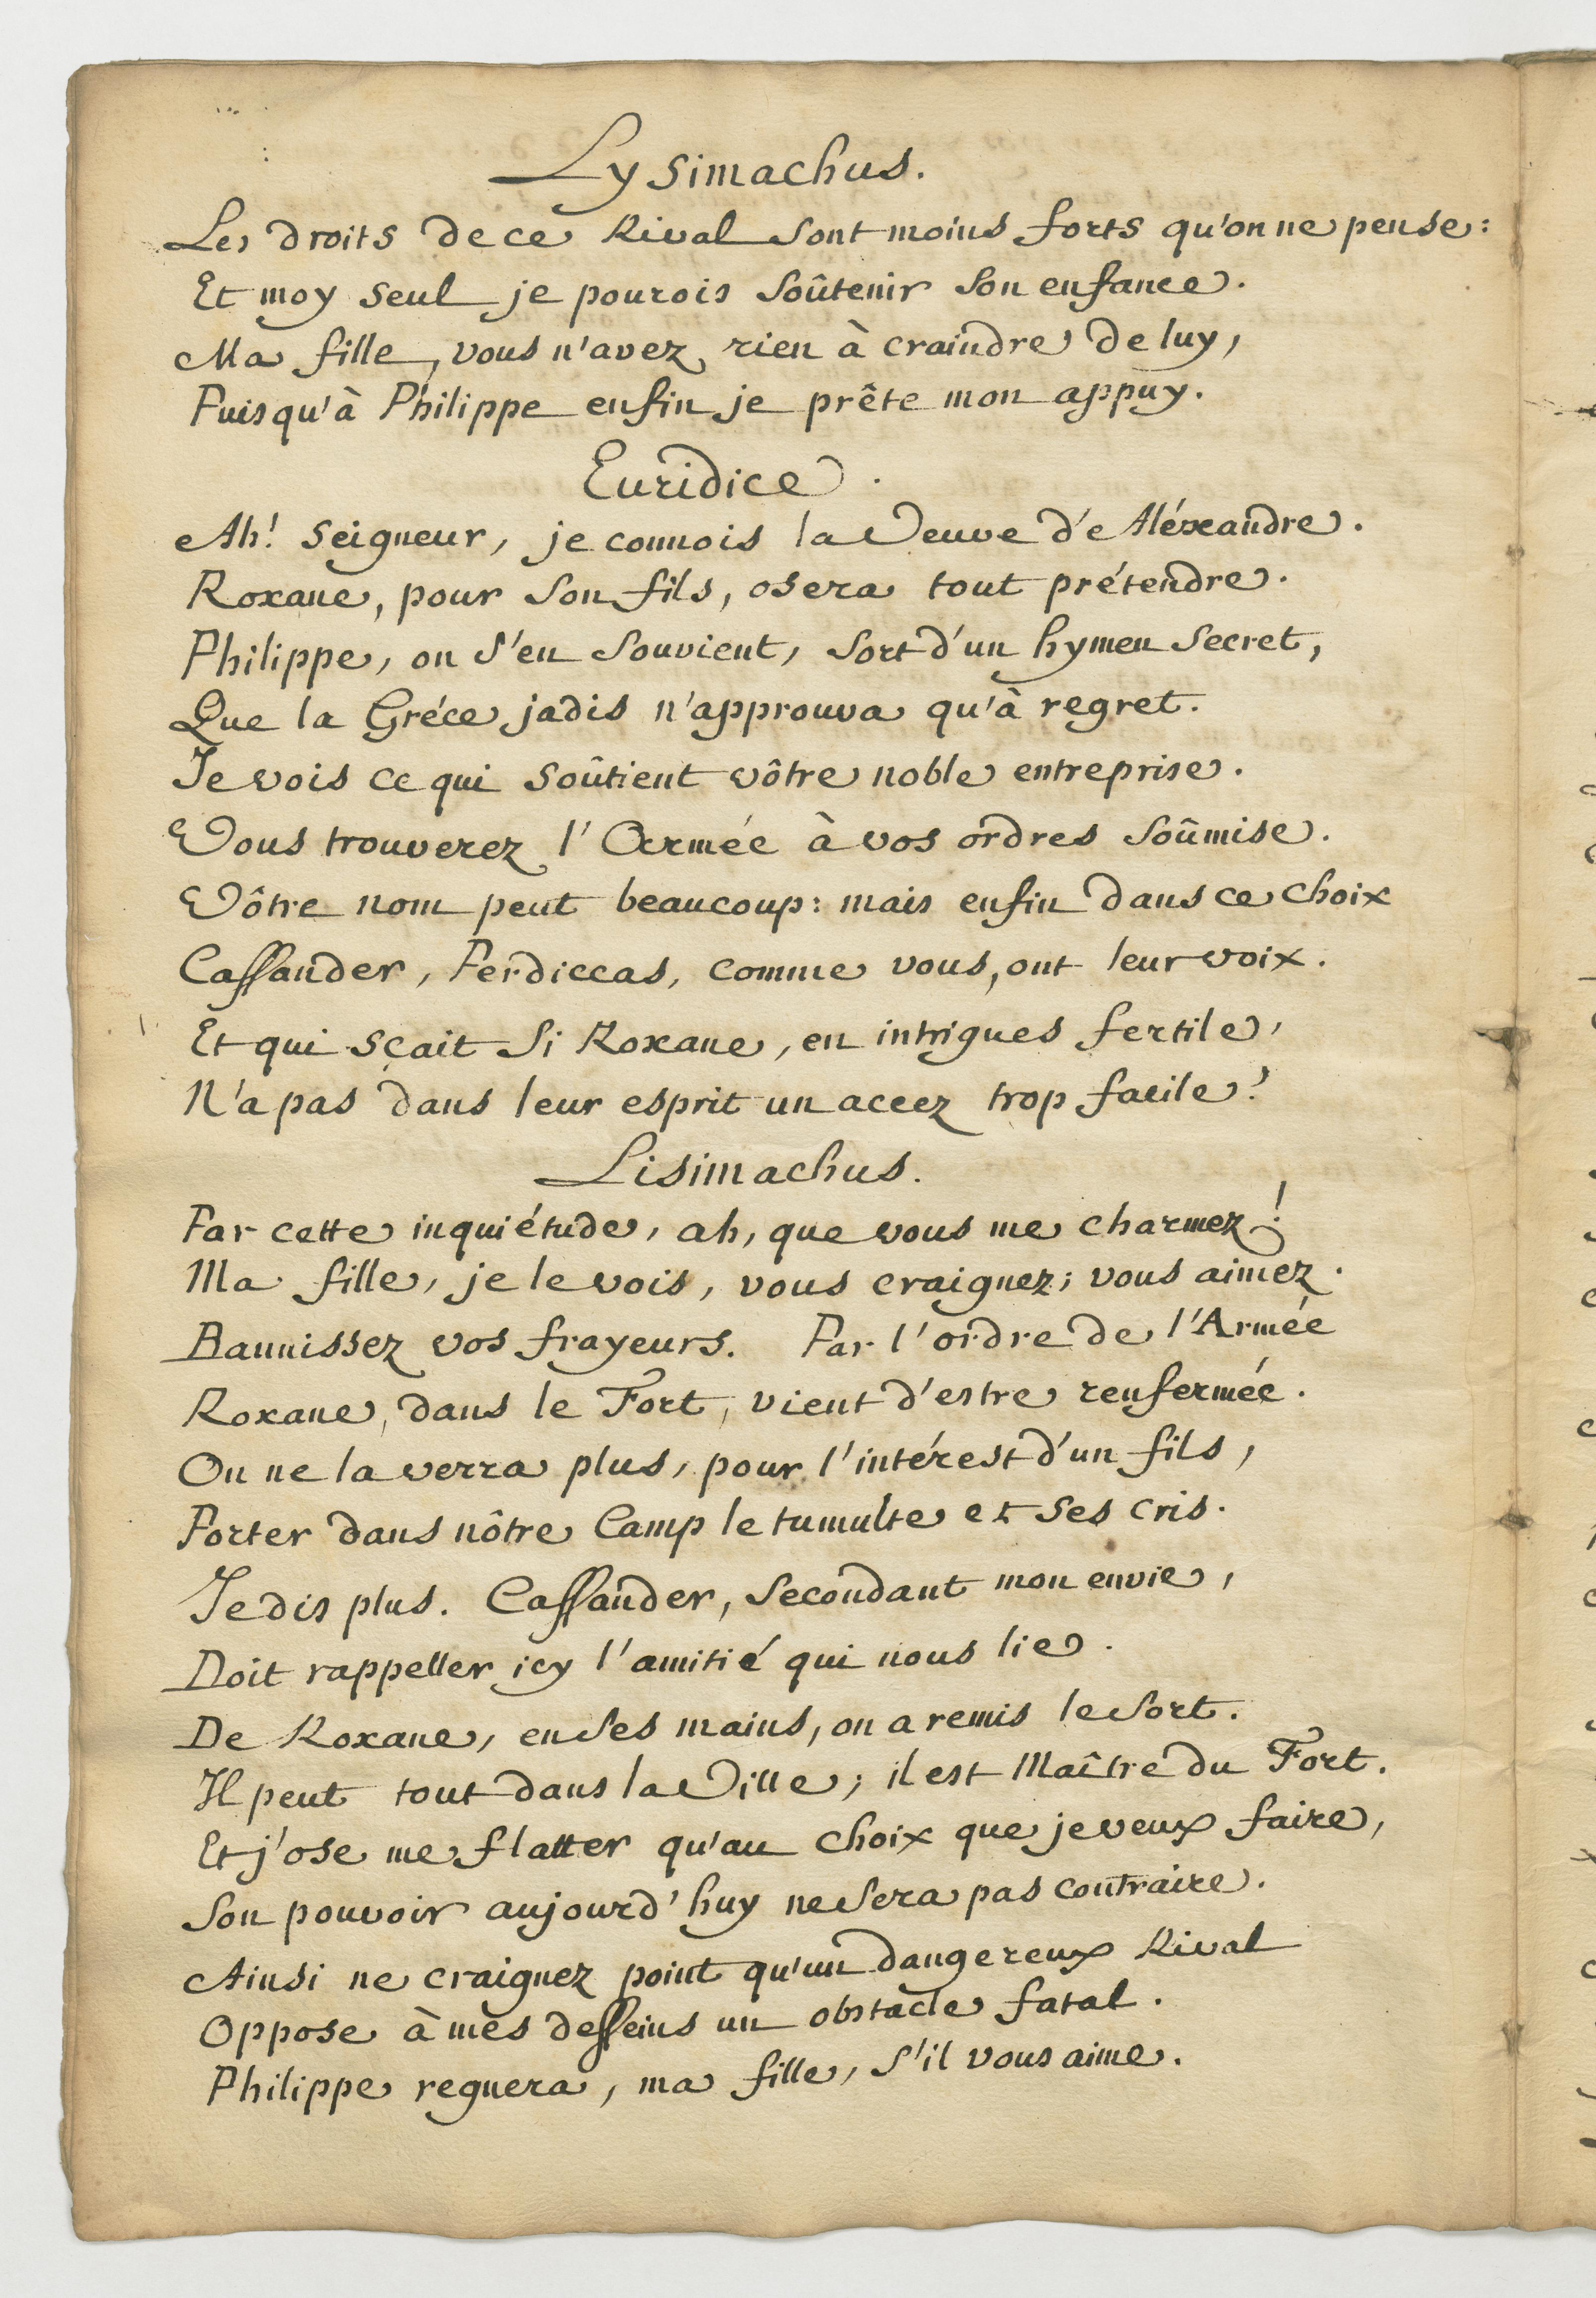 Lysimachus.
Les droits de ce Rival sont moins forts qu'on ne pense:
Et moy seul je pourois soûtenir son enfance.
Ma fille, vous n'avez rien à craindre de luy,
Puisqu'à Philippe enfin je prête mon appuy.
Euridice.
Ah! Seigneur, je connois la Veuve d'Aléxandre.
Roxane, pour son fils, osera tout prétendre.
Philippe, on s'en souvient, sort d'un hymen secret,
Que la Gréce jadis n'approuva qu'à regret.
Je vois ce qui soûtient vôtre noble entreprise.
Vous trouverez l'Armée à vos ordres soûmise.
Vôtre nom peut beaucoup: mais enfin dans ce choix
Cassander, Perdiccas, comme vous, ont leur voix.
Et qui sçait si Roxane, en intrigues fertile,
N'a pas dans leur esprit un accez trop facile?
Lisimachus.
Par cette inquiétude, ah, que vous me charmez!
Ma fille, je le vois, vous craignez; vous aimez.
Bannissez vos frayeurs. Par l'ordre de l'Armée
Roxane, dans le Fort, vient d'estre renfermée.
On ne la verra plus, pour l'intérest d'un fils,
Porter dans nôtre Camp le tumulte et ses cris.
Je dis plus. Cassander, secondant mon envie,
Doit rappeller icy l'amitié qui nous lie.
De Roxane, en ses mains, on a remis le sort.
Il peut tout dans la Ville; il est Maître du Fort.
Et j'ose me flatter qu'au choix que je veux faire,
Son pouvoir aujourd'huy ne sera pas contraire.
Ainsi ne craignez point qu'un dangereux Rival
Oppose à mes desseins un obstacle fatal.
Philippe regnera, ma fille, s'il vous aime.